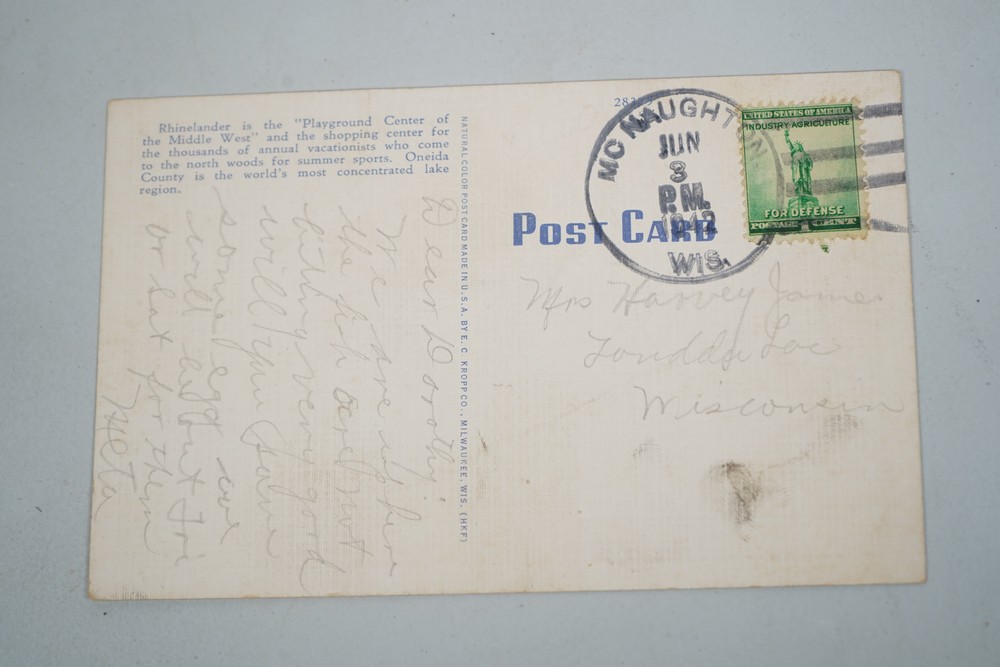 Rhinelander is the "Playground Center of
the Middle West" and the shopping center for
the thousands of annual vacationists who come
to the north woods for summer sports. Oneida
County is the world's most concentrated lake
region.
Dear Dorothy:
We are up here
the fish are not
biting very good
will you save
some eggs we
will be out Fri
or Sat for them
NATURAL COLOR POST CARD MADE IN U.S.A. BY E. C. KROPP CO., MILWAUKEE, WIS. (HKF)
POST CARD
MC NAUGHTON
JUN
3
P.M.
1942
WIS.
UNITED STATES OF AMERICA
INDUSTRY AGRICULTURE
FOR DEFENSE
POSTAGE 1 CENT
Mrs Harvey James
Fond du Lac
Wisconsin